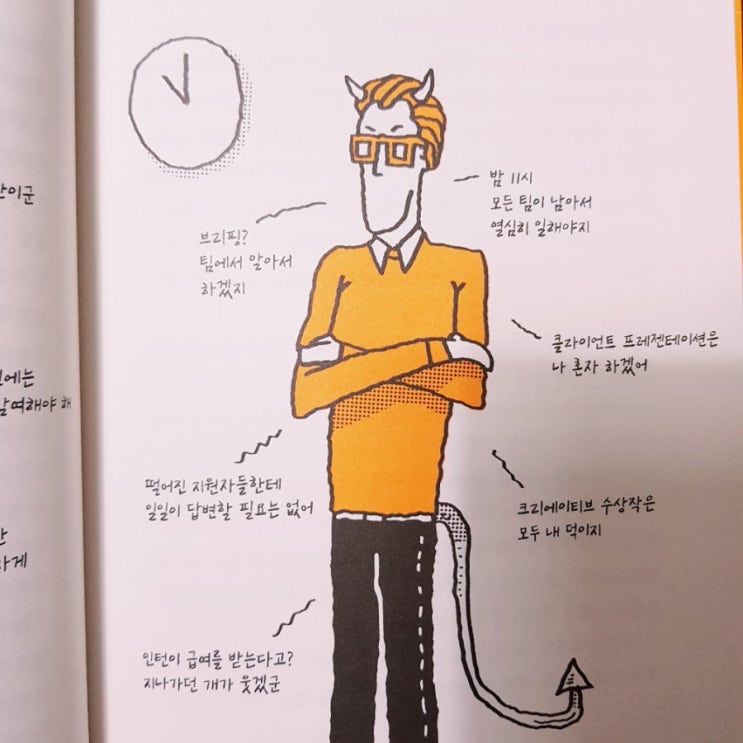 밤 11시
모든 팀이 남아서
열심히 일해야지
브리핑?
팀에서 알아서
하겠지
클라이언트 프레젠테이션은
나 혼자 하겠어
떨어진 지원자들한테
일일이 답변할 필요는 없어
크리에이티브 수상작은
모두 내 덕이지
인턴이 급여를 받는다고?
지나가던 개가 웃겠군